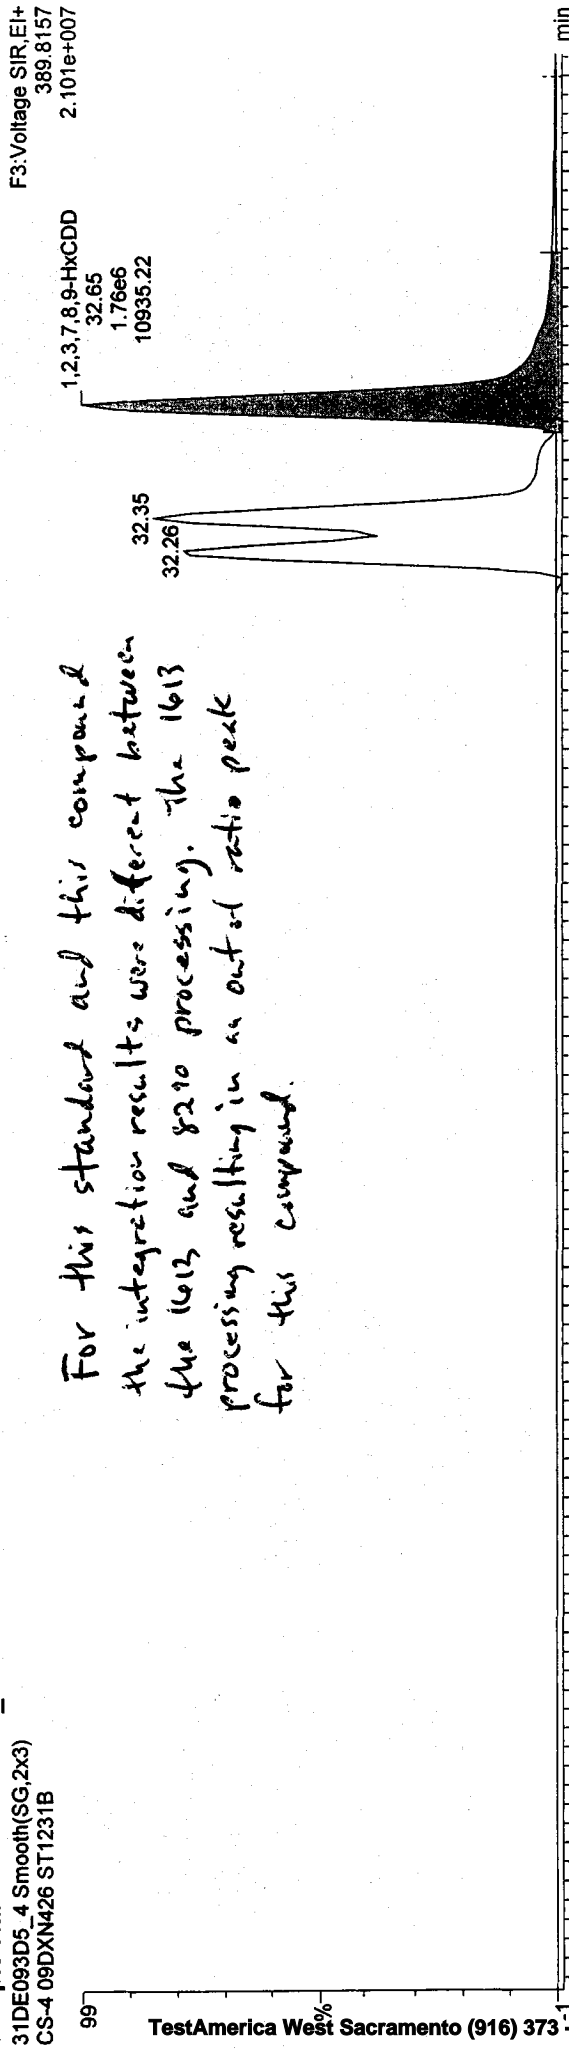 31DE093D5_4 Smooth(SG,2x3)
CS-4 09DXN426 ST1231B
F3:Voltage SIR,EI+
389.8157
2.101e+007
1,2,3,7,8,9-HxCDD
32.65
1.76e6
10935.22
32.35
32.26
For this standard and this compound
the integration results were different between
the 1613 and 8290 processing. The 1613
processing resulting in an out of ratio peak
for this compound.
99
%
-1
min
TestAmerica West Sacramento (916) 373-